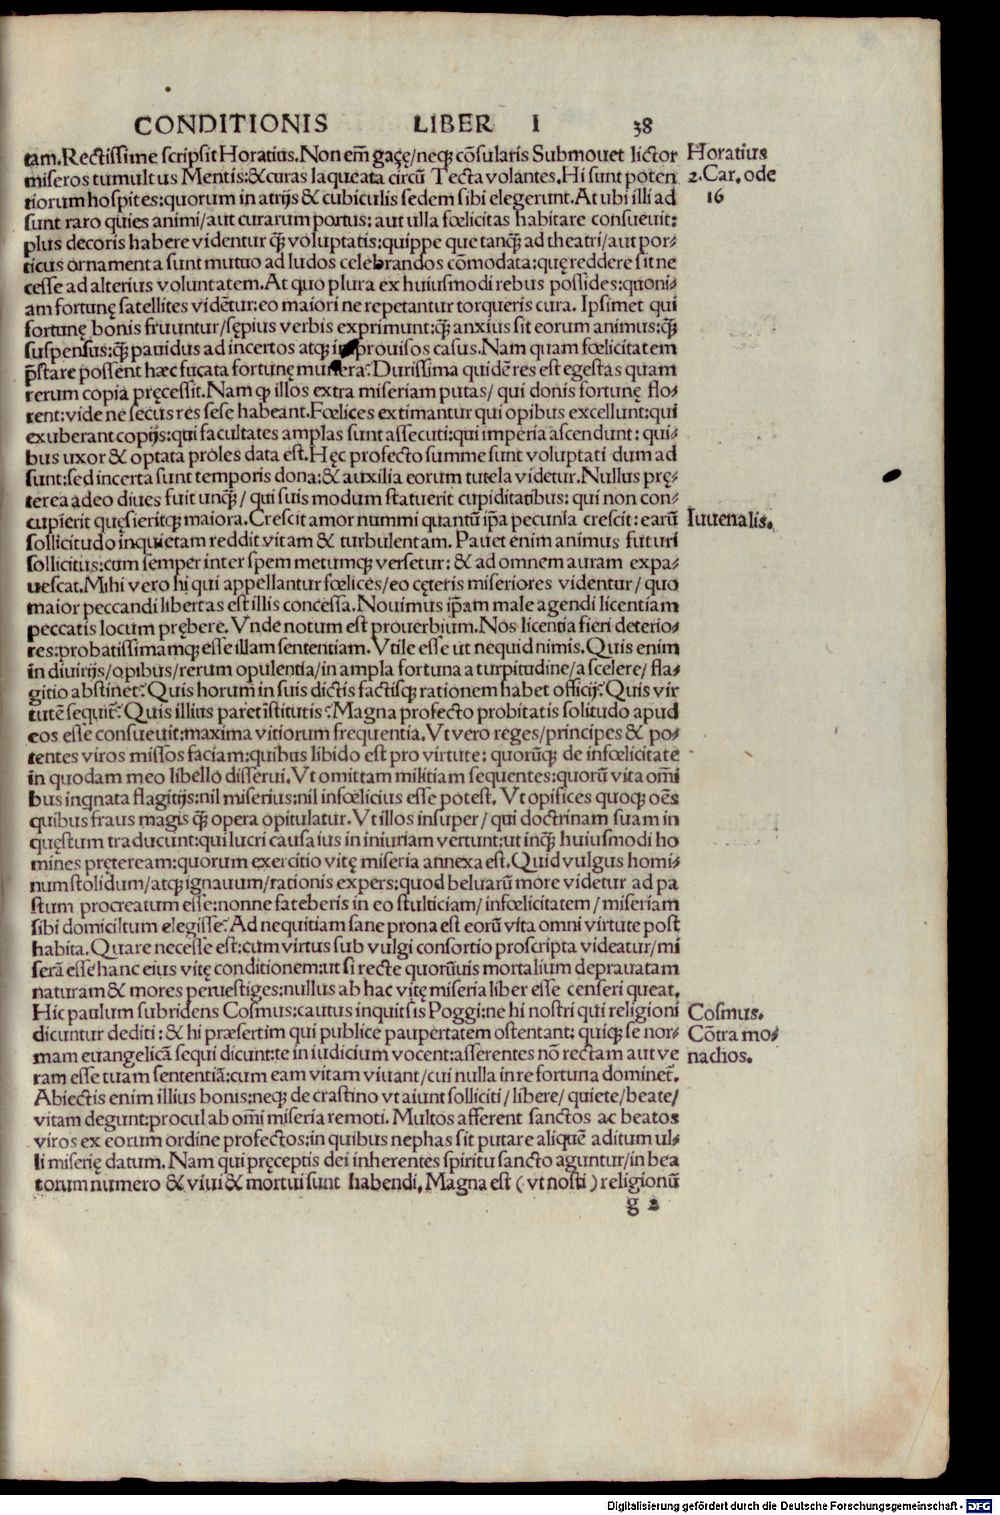 CONDITIONIS LIBER I 38
tam.Rectissime scripsit Horatius.Non em̃ gaçę/neqꝫ cõsularis Submouet lictor
Horatius
miseros tumultus Mentis:&curas laqueata circũ Tecta volantes.Hi sunt poten
2.Car.ode
tiorum hospites:quorum in atrijs & cubiculis sedem sibi elegerunt.At ubi illi ad
16
sunt raro quies animi/aut curarum portus: aut ulla fœlicitas habitare consueuit:
plus decoris habere videntur q̃ꝫ voluptatis:quippe que tanq̃ꝫ ad theatri/aut por⸗
ticus ornamenta sunt mutuo ad ludos celebrandos cõmodata:quę reddere sit ne
cesse ad alterius voluntatem.At quo plura ex huiusmodi rebus possides:quoni⸗
am fortunę satellites vidẽtur:eo maiori ne repetantur torqueris cura. Ipsimet qui
fortunę bonis fruuntur/sępius verbis exprimunt:q̃ꝫ anxius sit eorum animus:q̃ꝫ
suspensus:q̃ꝫ pauidus ad incertos atqꝫ improuisos casus.Nam quam fœlicitatem
p̃stare possent hæc fucata fortunę munera?Durissima quidẽ res est egestas quam
rerum copia pręcessit.Nam ꝙ illos extra miseriam putas/ qui donis fortunę flo⸗
rent:vide ne secus res sese habeant.Fœlices extimantur qui opibus excellunt:qui
exuberant copijs:qui facultates amplas sunt assecuti:qui imperia ascendunt: qui⸗
bus uxor & optata proles data est.Hęc profecto summe sunt voluptati dum ad
sunt:sed incerta sunt temporis dona:& auxilia eorum tutela videtur.Nullus prę⸗
terea adeo diues fuit unq̃ꝫ/ qui suis modum statuerit cupiditatibus: qui non con⸗
cupierit quęsieritqꝫ maiora.Crescit amor nummi quantũ ip̃a pecunia crescit: earũ
Iuuenalis.
sollicitudo inquietam reddit vitam & turbulentam. Pauet enim animus futuri
sollicitus:cum semper inter spem metumqꝫ versetur: & ad omnem auram expa⸗
uescat.Mihi vero hi qui appellantur fœlices/eo cęteris miseriores videntur/ quo
maior peccandi libertas est illis concessa.Nouimus ip̃am male agendi licentiam
peccatis locum prębere.Vnde notum est prouerbium.Nos licentia fieri deterio⸗
res:probatissimamqꝫ esse illam sententiam.Vtile esse ut nequid nimis.Quis enim
in diuitijs/opibus/rerum opulentia/in ampla fortuna a turpitudine/a scelere/ fla⸗
gitio abstinet?Quis horum in suis dictis factisqꝫ rationem habet officij?Quis vir
tutẽ sequit̃?Quis illius paret ĩstitutis?Magna profecto probitatis solitudo apud
eos esse consueuit:maxima vitiorum frequentia.Vt vero reges/principes & po⸗
tentes viros missos faciam:quibus libido est pro virtute: quorũqꝫ de infœlicitate
in quodam meo libello disserui.Vt omittam militiam sequentes:quorũ vita om̃i
bus inqnata flagitijs:nil miserius:nil infœlicius esse potest. Vt opifices quoqꝫ oẽs
quibus fraus magis q̃ꝫ opera opitulatur.Vt illos insuper/ qui doctrinam suam in
quęstum traducunt:qui lucri causa ius in iniuriam vertunt:ut inq̃ꝫ huiusmodi ho
mines pręteream:quorum exercitio vitę miseria annexa est.Quid vulgus homi⸗
num stolidum/atqꝫ ignauum/rationis expers:quod beluarũ more videtur ad pa
stum procreatum esse:nonne fateberis in eo stulticiam/infœlicitatem/miseriam
sibi domiciltum elegisse?Ad nequitiam sane prona est eorũ vita omni virtute post
habita.Quare necesse est:cum virtus sub vulgi consortio proscripta videatur/mi
serã esse hanc eius vitę conditionem:ut si recte quorũuis mortalium deprauatam
naturam & mores peruestiges:nullus ab hac vitę miseria liber esse censeri queat.
Hic paulum subridens Cosmus:cautus inquit sis Poggi:ne hi nostri qui religioni
Cosmus.
dicuntur dediti: & hi præsertim qui publice paupertatem ostentant: quiqꝫ se nor⸗
Cõtra mo⸗
mam euangelicã sequi dicunt:te in iudicium vocent:asserentes nõ rectam aut ve
nachos.
ram esse tuam sententiã:cum eam vitam viuant/cui nulla in re fortuna dominet̃.
Abiectis enim illius bonis:neqꝫ de crastino vt aiunt solliciti/libere/quiete/beate/
vitam degunt:procul ab om̃i miseria remoti. Multos afferent sanctos ac beatos
viros ex eorum ordine profectos:in quibus nephas sit putare aliquẽ aditum ul⸗
li miserię datum. Nam qui pręceptis dei inherentes spiritu sancto aguntur/in bea
torum numero & viui & mortui sunt habendi.Magna est (vt nosti) religionũ
g 2
Digitalisierung gefördert durch die Deutsche Forschungsgemeinschaft - DFG